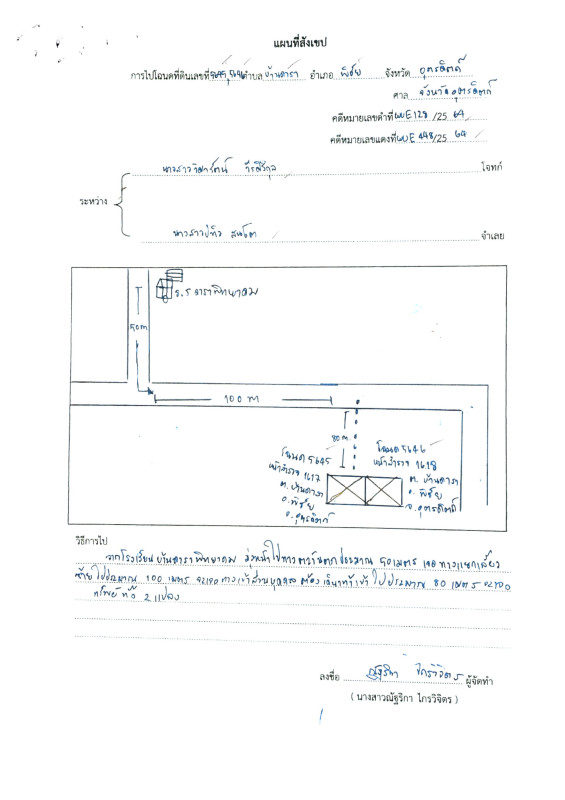 แผนที่สังเขป
การไปโฉนดที่ดินเลขที่ 5645, 5646 ตำบล บ้านดารา อำเภอ พิชัย จังหวัด อุตรดิตถ์
ศาล จังหวัดอุตรดิตถ์
คดีหมายเลขดำที่ ผบE128 /25 64
คดีหมายเลขแดงที่ ผบE 448 /25 64
นางสาว โจทก์
ระหว่าง
นางสาว จำเลย
ร.ร ดาราพิทยาคม
50m
100 m
80 m.
โฉนด 5645
หน้าสำรวจ 1617
ต.บ้านดารา
อ.พิชัย
จ.อุตรดิตถ์
โฉนด 5646
หน้าสำรวจ 1618
ต.บ้านดารา
อ.พิชัย
จ.อุตรดิตถ์
วิธีการไป
จากโรงเรียนบ้านดาราพิทยาคม มุ่งหน้าไปทางตะวันตกประมาณ 50 เมตร เจอทางแยกเลี้ยว
ซ้ายไปประมาณ 100 เมตร ทางเข้าส่วนบุคคล ต้องเดินเท้าเข้าไปประมาณ 80 เมตร
ทรัพย์ทั้ง 2 แปลง
ลงชื่อ ณัฐริกา ไกรวิจิตร ผู้จัดทำ
( นางสาวณัฐริกา ไกรวิจิตร )